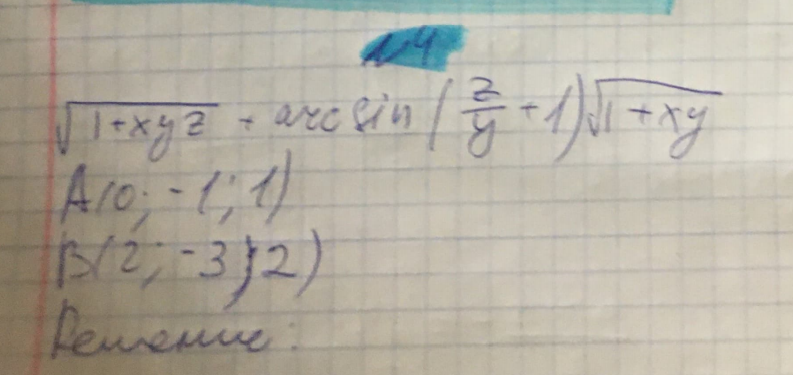 №4
√(1+xyz) + arcsin(z/y + 1)√(1+xy)
A(0; -1; 1)
B(2; -3; 2)
Решение: